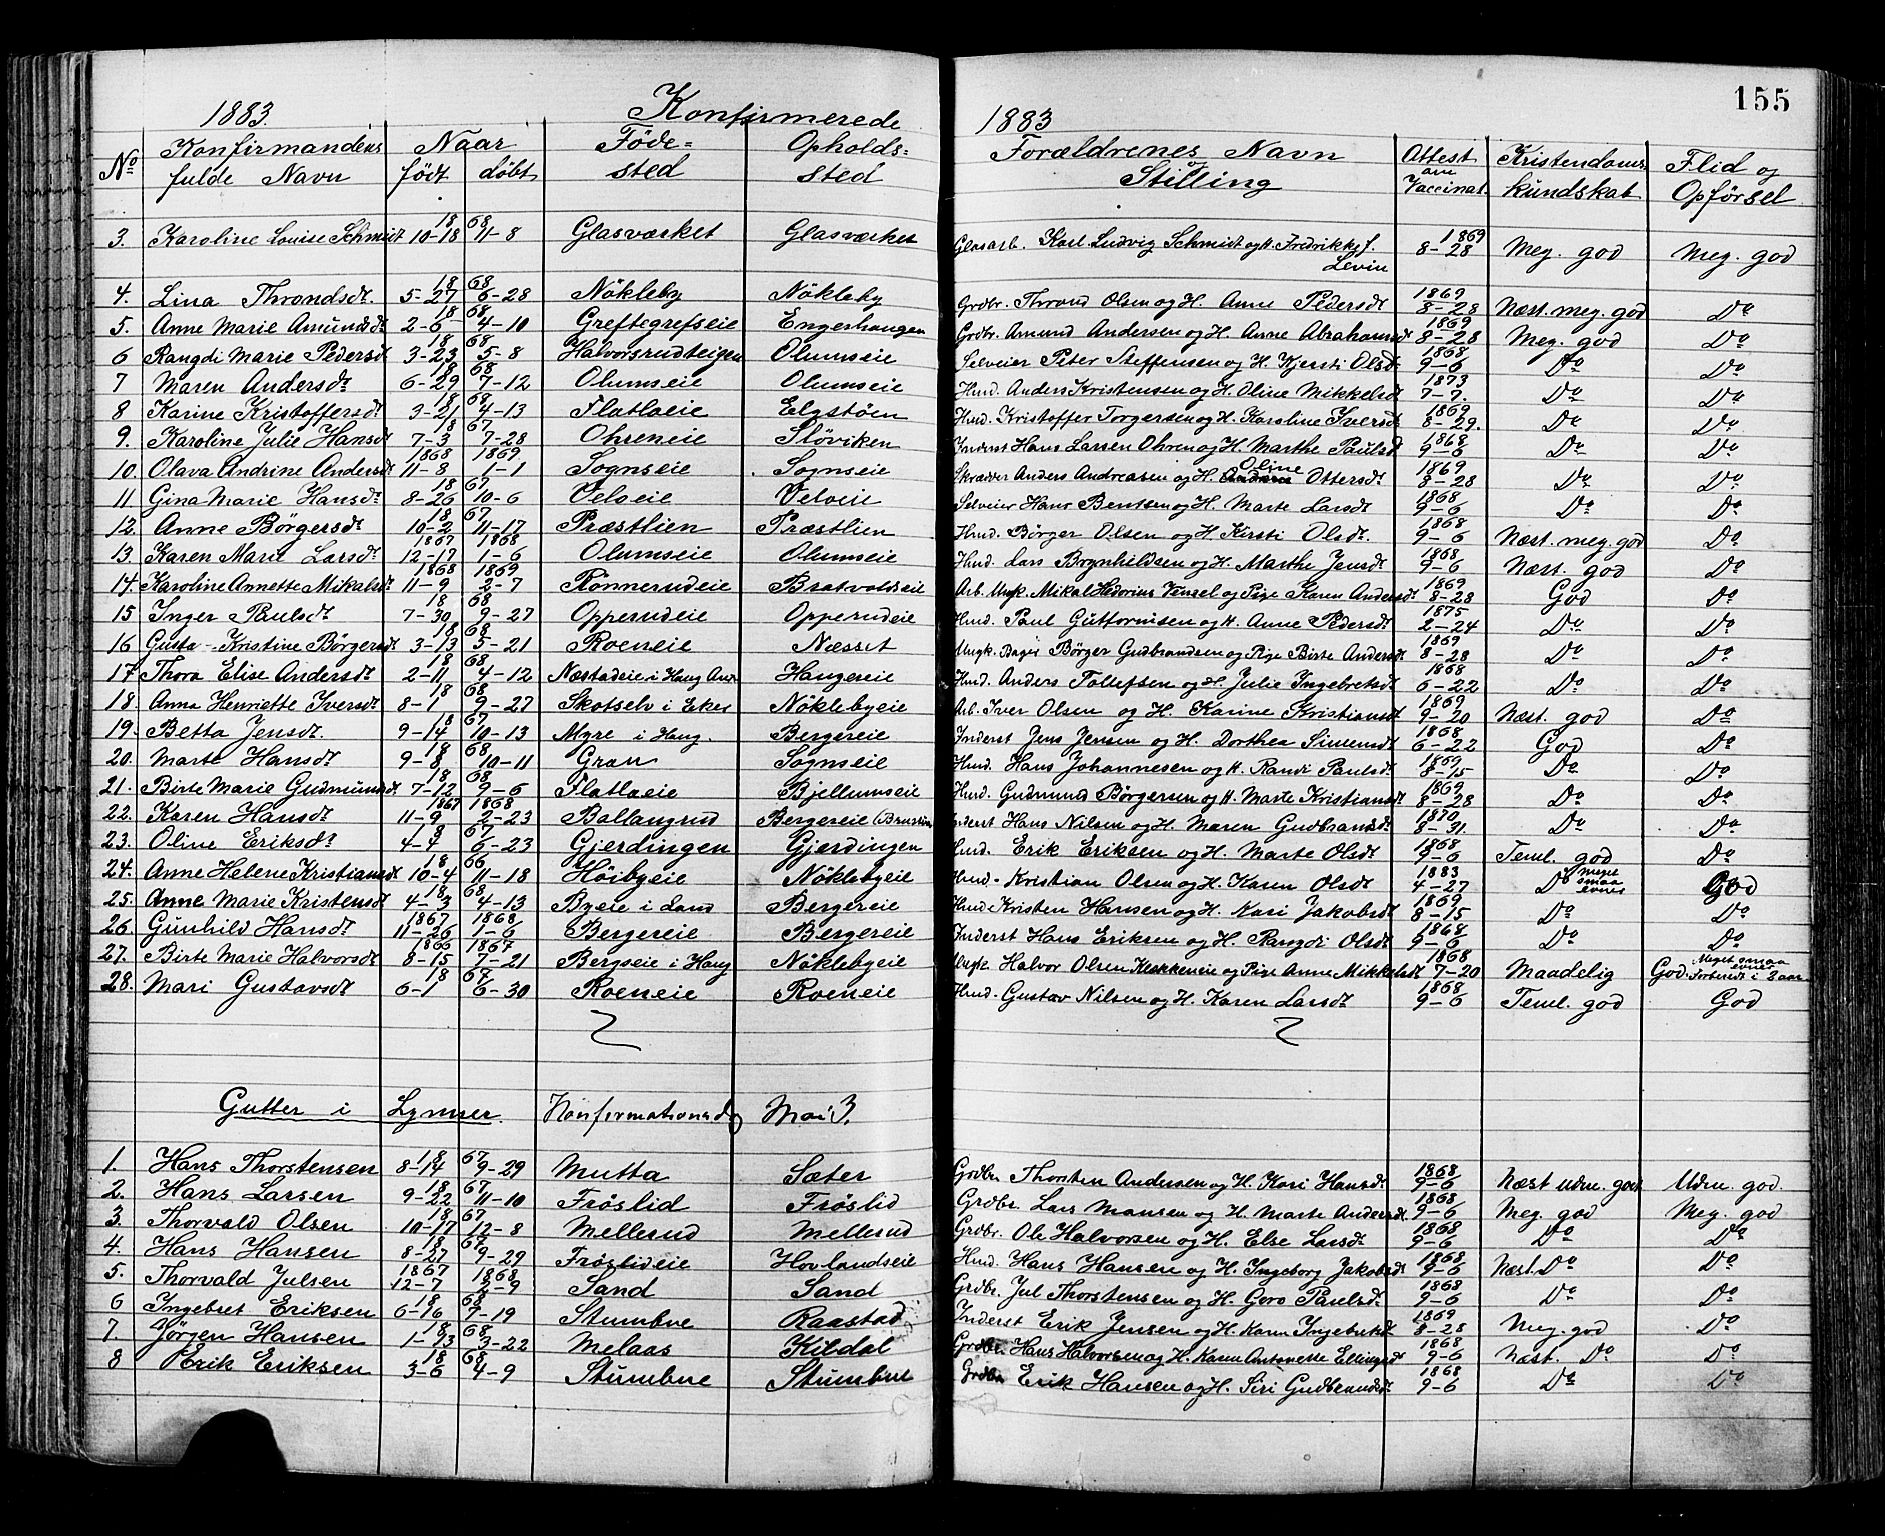 155
1883. Konfirmerede 1883
No Konfirmandens fulde Navn Naar født døbt Føde=sted Opholds=sted Forældrenes Navn og Stilling Attest om Vaccinat. Kristendoms kundskab Flid og Opførsel
3. Karoline Louise Schmidt 10-18 18 68 11-8 Glasværket Glasværket Glasarb. Karl Ludvig Schmidt og H. Fredrikke f. Levin 1869 8-28 Meg. god Meg. god
4. Lina Throndsdt. 5-27 18 68 6-28 Nökleby Nökleby Grdbr. Thrond Olsen og H. Anne Pedersdt 1869 8-28 Næst. meg. god Do
5. Anne Marie Amundsdt 2-6 18 68 4-10 Greftegrefseie Engerhaugen Grdbr. Amund Andersen og H. Anne Abrahamsdt 1869 8-28 Meg. god Do
6 Rangdi Marie Pedersdt 3-23 18 68 5-8 Halvorsrudteigen Olumseie Selveier Peter Steffensen og H. Kjersti Olsd 1868 9-6 Do Do
7 Maren Andersdt 6-29 18 68 7-12 Olumseie Olumseie Hmd. Anders Kristensen og H. Oline Mikkelsdt 1873 7-7. Do Do
8 Karine Kristoffersdt 3-21 18 68 4-13 Flatlaeie Elgstöen Hmd. Kristoffer Torgersen og H. Karoline Iversdt 1869 8-29. Do Do
9. Karoline Julie Hansdt 7-3 18 67 7-28 Ohreneie Slöviken Inderst Hans Larsen Ohren og H. Marthe Paulsd 1868 9-6 Do Do
10. Olava Andrine Andersdt 1868 11-8 1869 1-1 Sognseie Sognseie Skrædder Anders Andreasen og H. Oline Ottersdt 1869 8-28 Do Do
11 Gina Marie Hansdt 8-26 18 67 10-6 Velveie Velveie Selveier Hans Bentsen og H. Marte Larsdt 1868 9-6 Do Do
12. Anne Börgersdt 10-2 18 67 11-17 Præstlien Præstlien Hmd. Börger Olsen og H. Kirsti Olsdt. 1868 9-6 Næst. meg. god Do
13. Karen Marie Larsdt 1867 12-17 1868 1-6 Olumseie Olumseie Hmd. Lars Brynhildsen og H. Marthe Jensdt 1868 9-6 Næst. god Do
14. Karoline Annette Mikalsdt 1868 11-9 1869 2-7 Rönnerudeie Bratvoldseie Arb. Ungk. Mikal Hedorius Venzel og Pige Karen Andersdt 1869 8-28 God Do
15 Inger Paulsdt 7-30 18 68 9-27 Opperudeie Opperudeie Hmd. Paul Guttormsen og H. Anne Pedersdt 1875 2-24 Do Do
16 Gusta Kristine Börgersdt 3-13 18 68 5-21 Roeneie Næsset Ungk. Bager Börger Gudbrandsen og Pige Birte Andersdt 1869 8-28 Do Do
17 Thora Elise Andersdt 2-11 18 68 4-12 Næstadeie i Haug Haugereie Hmd. Anders Tollefsen og H. Julie Ingebretsdt 1868 6-22 Do Do
18. Anna Henriette Iversdt 8-1 18 68 9-27 Skotselv i Eker Nöklebyeie Arb. Iver Olsen og H. Karine Kristiansdt 1869 9-20 Næst. god Do
19. Betta Jensdt. 9-14 18 67 10-13 Myre i Haug. Bergereie Inderst Jens Jensen og H. Dorthea Simensdt 1868 6-22 God Do
20. Marte Hansdt 9-8 18 68 10-11 Gran Sognseie Hmd. Hans Johannesen og H. Randi Paulsdt 1869 8-15 Do Do
21. Birte Marie Gudmundsdt 7-12 18 68 9-6 Flatlaeie Bjellumseie Hmd. Gudmund Börgersen og H. Marte Kristiansdt 1869 8-28 Do Do
22. Karen Hansdt 1867 11-9 1868 2-23 Ballangrud Bergereie Inderst Hans Nilsen og H. Maren Gudbransdt 1870 8-31. Do Do
23. Oline Eriksdt 4-4 18 67 6-23 Gjerdingen Gjerdingen Hmd. Erik Eriksen og H. Marte Olsdt 1868 9-6 Teml. god Do
24. Anne Helene Kristiansdt 10-4 18 66 11-18 Höibyeie Nöklebyeie Hmd. Kristian Olsen og H. Karen Olsdt 1883 4-27 Do meget smaa evner God
25. Anne Marie Kristensdt 4-3 18 68 4-13 Byeie i Land Bergereie Hmd. Kristen Hansen og H. Kari Jakobsdt 1869 8-15 Do Do
26. Gunhild Hansdt 1867 11-26 1868 1-6 Bergereie Bergereie Inderst Hans Eriksen og H. Rangdi Olsdt 1868 9-6 Do Do
27. Birte Marie Halvorsdt 1866 8-15 1867 7-21 Bergseie i Haug Nöklebyeie Ungk. Halvor Olsen Klekkeneie og Pige Anne Mikkelsdt 1868 7-20 Maadelig God. Meget smaa evner Forberedt i 2 aar
28. Mari Gustavsdt 6-1 18 67 6-30 Roeneie Roeneie Hmd. Gustav Nilsen og H. Karen Larsdt 1868 9-6 Teml. god God
Gutter i Lynner. Konfirmationsd Mai 3.
1. Hans Thorstensen 8-14 18 67 9-29 Mutta Sæter Grdbr. Thorsten Andersen og H. Kari Hansdt. 1868 9-6 Næst udm. god Udm. god.
2. Hans Larsen 9-22 18 67 11-10 Fröslid Fröslid Grdbr. Lars Monsen og H. Marte Andersdt. 1868 9-6 Meg. god Meg. god
3. Thorvald Olsen 10-17 18 67 12-8 Mellerud Mellerud Grdbr. Ole Halvorsen og H. Else Larsdt 1868 9-6 Do Do
4. Hans Hansen 8-27 18 67 9-29 Fröslideie Hovlandseie Hmd. Hans Hansen og H. Ingeborg Jakobsdt 1868 9-6 Næst. Do Do
5. Thorvald Julsen 1867 12-7 1868 2-9 Sand Sand Grdbr. Jul Thorstensen og H. Goro Paulsdt. 1868 9-6 Do Do
6 Ingebret Eriksen 6-16 18 68 7-19 Stumbne Raastad Inderst Erik Jensen og H. Karen Ingebretsdt 1869 8-28 Meg. god Do
7. Jørgen Hansen 1-13 18 68 3-22 Melaas Kildal Grdbr. Hans Halvorsen og H. Karen Antonette Ellingsdt 1868 9-6 Næst. Do Do
8 Erik Eriksen 3-6 18 68 4-9 Stumbne Stumbne Grdbr Erik Hansen og H. Siri Gudbrandsdt. 1868 9-6 Do Do